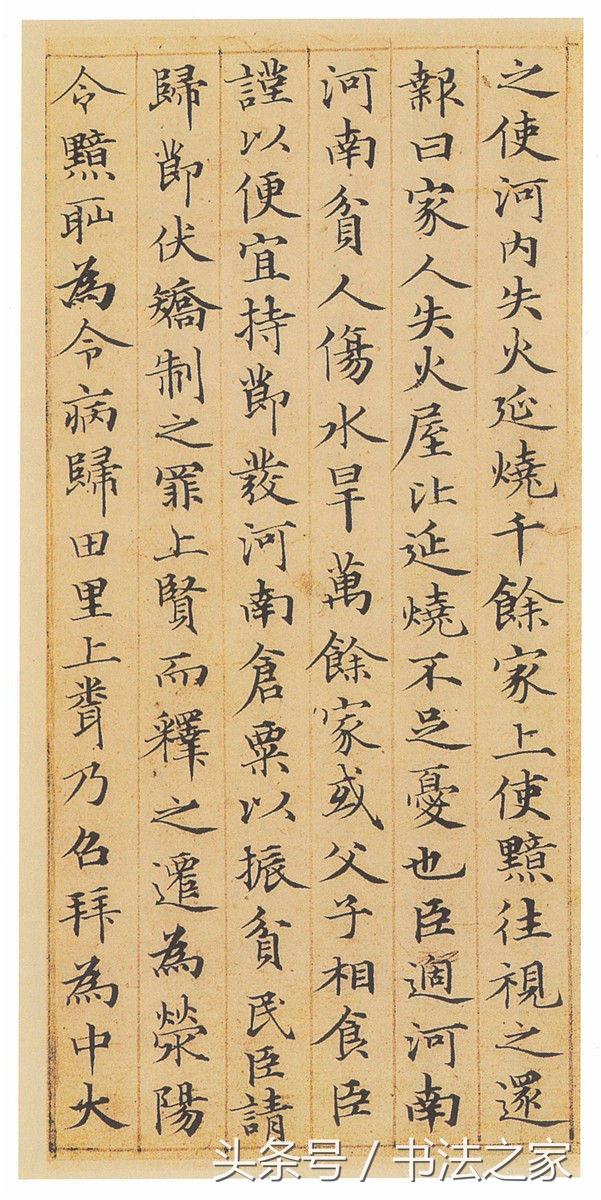 之使河内失火延燒千餘家上使黯往視之還
報曰家人失火屋比延燒不足憂也臣過河南
河南貧人傷水旱萬餘家或父子相食臣
謹以便宜持節發河南倉粟以振貧民臣請
歸節伏矯制之罪上賢而釋之遷為滎陽
令黯耻為令病歸田里上聞乃召拜為中大
头条号 / 书法之家